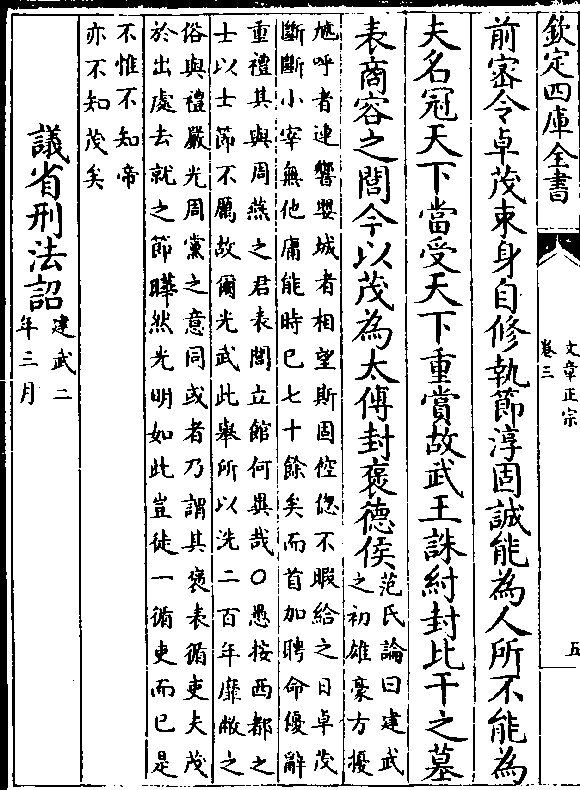 欽定四庫全書
文章正宗
卷三
五
前密令卓茂束身自修執節淳固誠能為人所不能為
夫名冠天下當受天下重賞故武王誅紂封比干之墓
表商容之閭今以茂為太傅封褒德侯范氏論曰建武
之初雄豪方擾
虓呼者連響嬰城者相望斯固倥偬不暇給之日卓茂
斷斷小宰無他庸能時已七十餘矣而首加聘命優辭
重禮其與周燕之君表閭立館何異哉○愚按西都之
士以士節不厲故爾光武此舉所以洗二百年靡敝之
俗與禮嚴光周黨之意同或者乃謂其褒表循吏夫茂
於出處去就之節曄然光明如此豈徒一循吏而已是
不惟不知帝
亦不知茂矣
議省刑法詔建武二
年三月